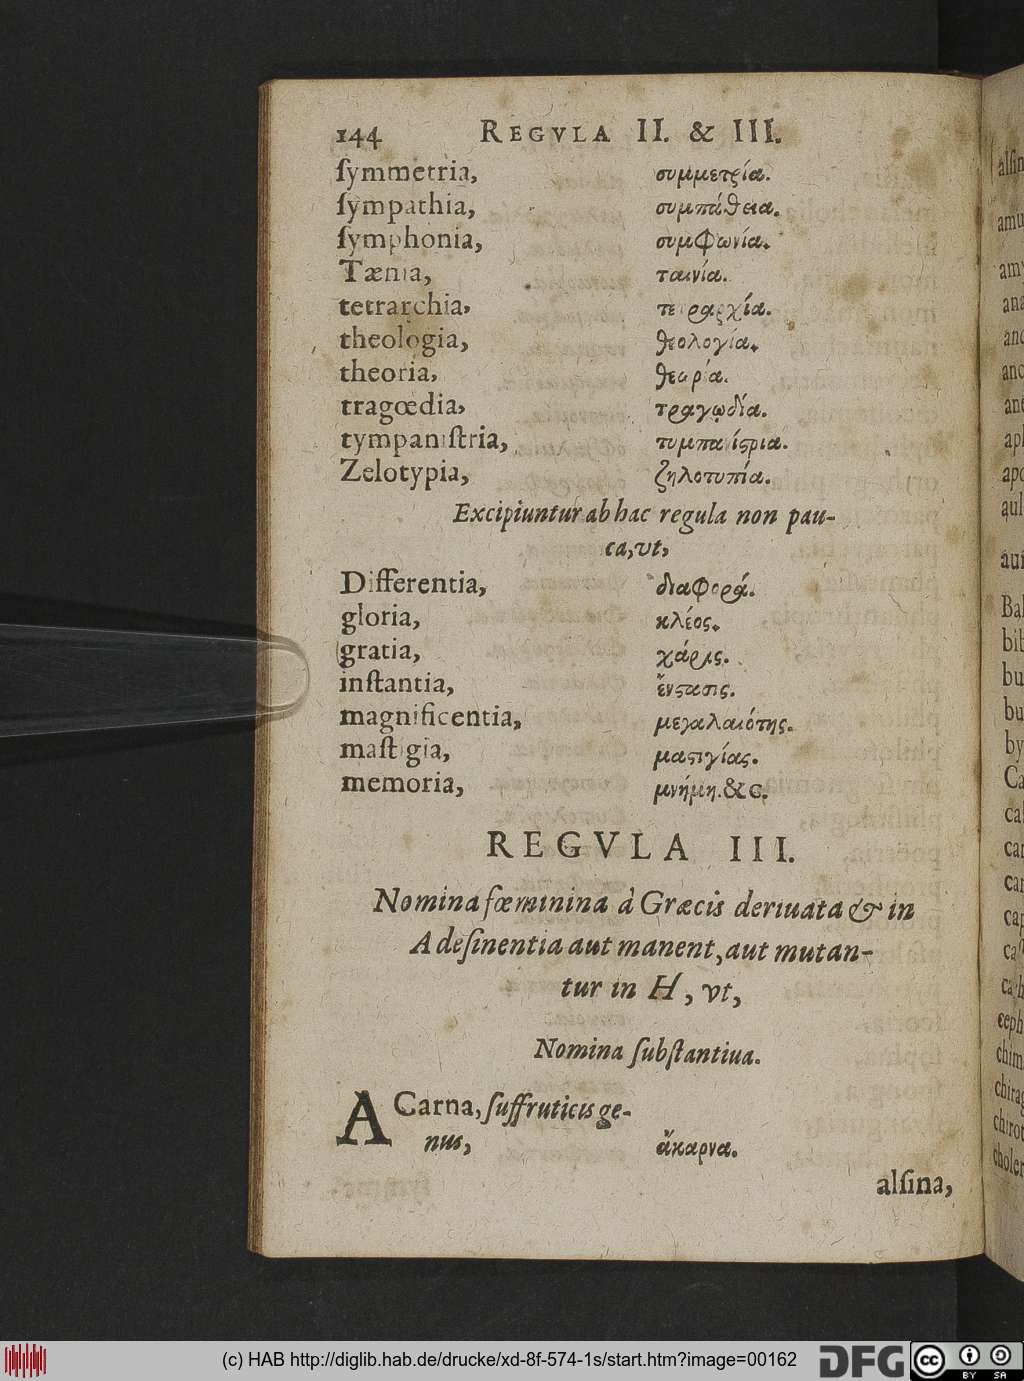 144 REGVLA II. & III.
ſymmetria, συμμετρία.
ſympathia, συμπάθεια.
ſymphonia, συμφωνία.
Tænia, ταινία.
tetrarchia, τετραρχία.
theologia, θεολογία.
theoria, θεωρία.
tragœdia, τραγῳδία.
tympaniſtria, τυμπανίςρια.
Zelotypia, ζηλοτυπία.
Excipiuntur ab hac regula non pau-
ca, vt,
Differentia, διαφορά.
gloria, κλέος.
gratia, χάρις.
inſtantia, ἔνςασις.
magnificentia, μεγαλειότης.
maſtigia, μαςιγίας.
memoria, μνήμη. &c.
REGVLA III.
Nomina fœminina à Græcis deriuata & in
A deſinentia aut manent, aut mutan-
tur in H, vt,
Nomina ſubſtantiua.
ACarna, ſuffruticis ge-
nus, ἄκαρνα.
alſina,
alſin
amu
ana
Bal
bib
bu
bu
by
Ca
cal
car
car
cap
ceph
chim
chirag
chirot
choler
(c) HAB http://diglib.hab.de/drucke/xd-8f-574-1s/start.htm?image=00162 DFG cc BY SA